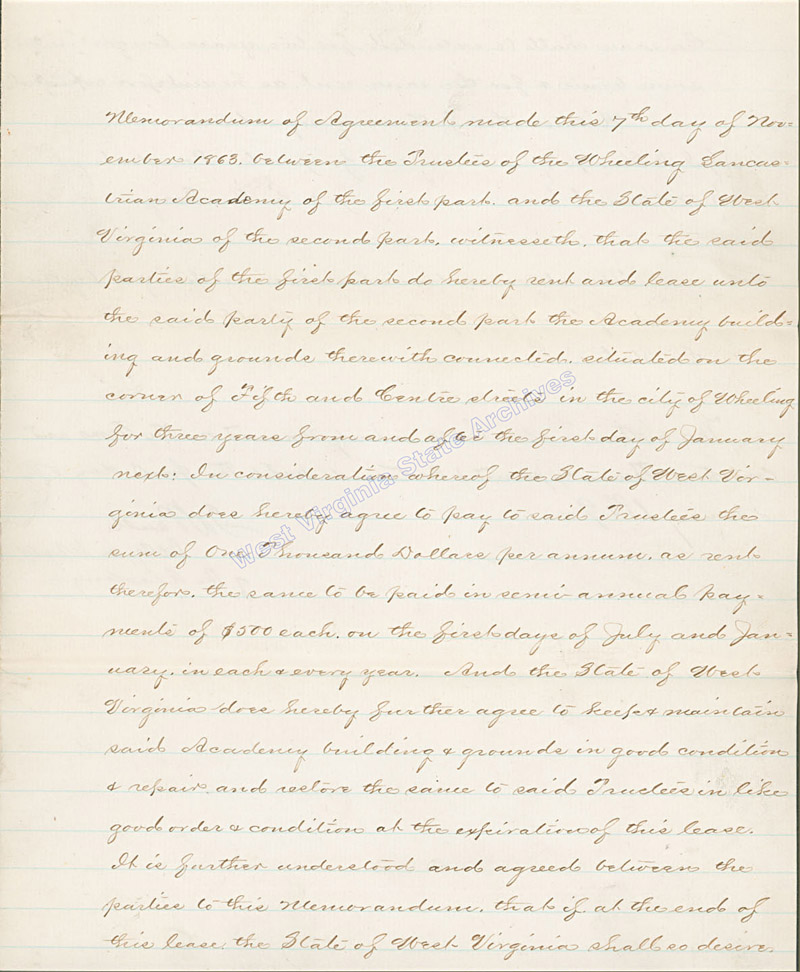 Memorandum of Agreement made this 7th day of Nov=
ember 1863. between the Trustees of the Wheeling Lancas=
trian Academy of the first part. and the State of West
Virginia of the second part. witnesseth. that the said
parties of the first part do hereby rent and lease unto
the said party of the second part the Academy build=
ing and grounds therewith connected. situated on the
corner of Fifth and Centre streets in the city of Wheeling
for three years from and after the first day of January
next: In consideration whereof the State of West Vir-
ginia does hereby agree to pay to said Trustees the
sum of One Thousand Dollars per annum. as rent
therefor. the same to be paid in semi-annual pay=
ments of $500 each. on the first days of July and Jan=
uary. in each & every year. And the State of West
Virginia does hereby further agree to keep & maintain
said Academy building & grounds in good condition
& repair. and restore the same to said Trustees in like
good order & condition at the expiration of this lease.
It is further understood and agreed between the
parties to this Memorandum. that if at the end of
this lease. the State of West Virginia shall so desire.
West Virginia State Archives